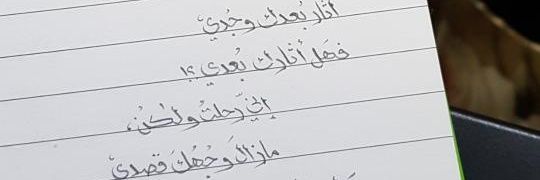 أثار بُعدك وجْدي
فهل أثارك بُعدي ؟!
إنّي رحلتُ ولكن،
مازال وجهُكَ قصدي